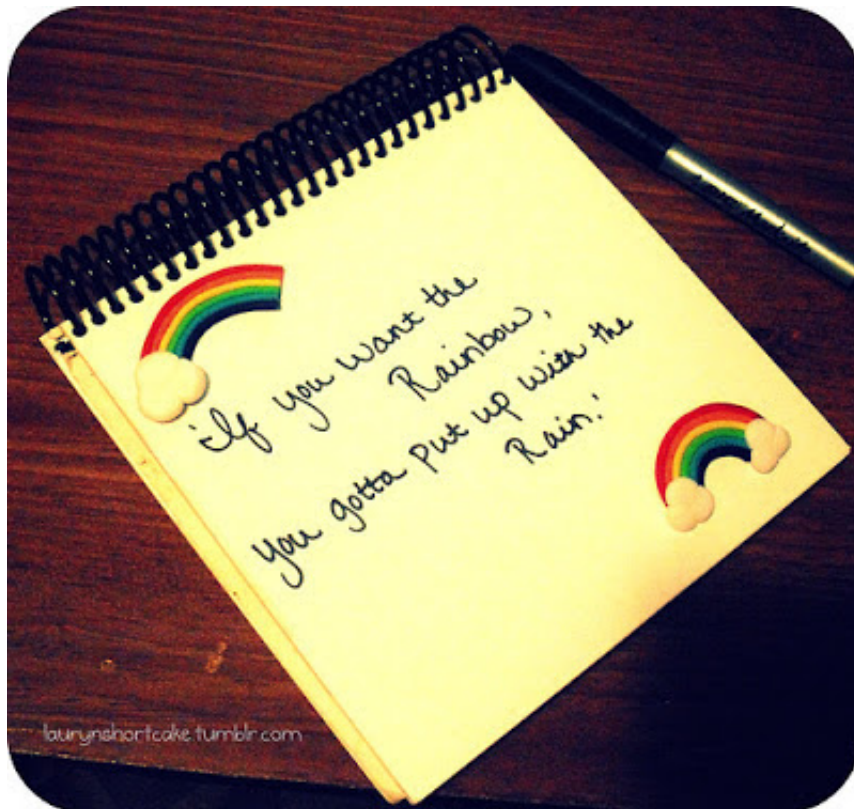 'If you want the
Rainbow,
you gotta put up with the
Rain.'
laurynshortcake.tumblr.com